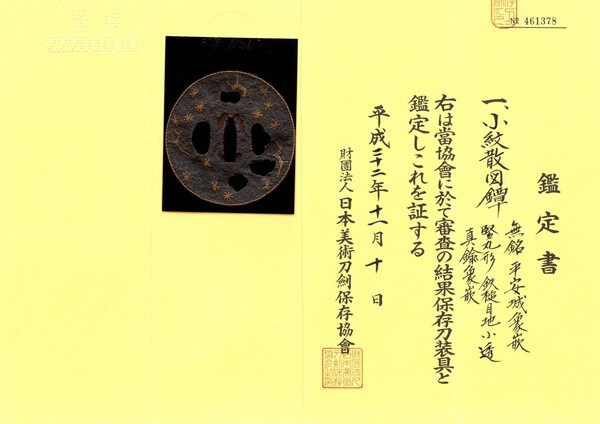 № 461378
鑑定書
一、小紋散図鐔
無銘 平安城象嵌
竪丸形 鉄槌目地 小透
真鍮象嵌
右は當協會に於て審査の結果保存刀装具と
鑑定しこれを証する
平成二十二年十一月十日
財團法人日本美術刀劍保存協會